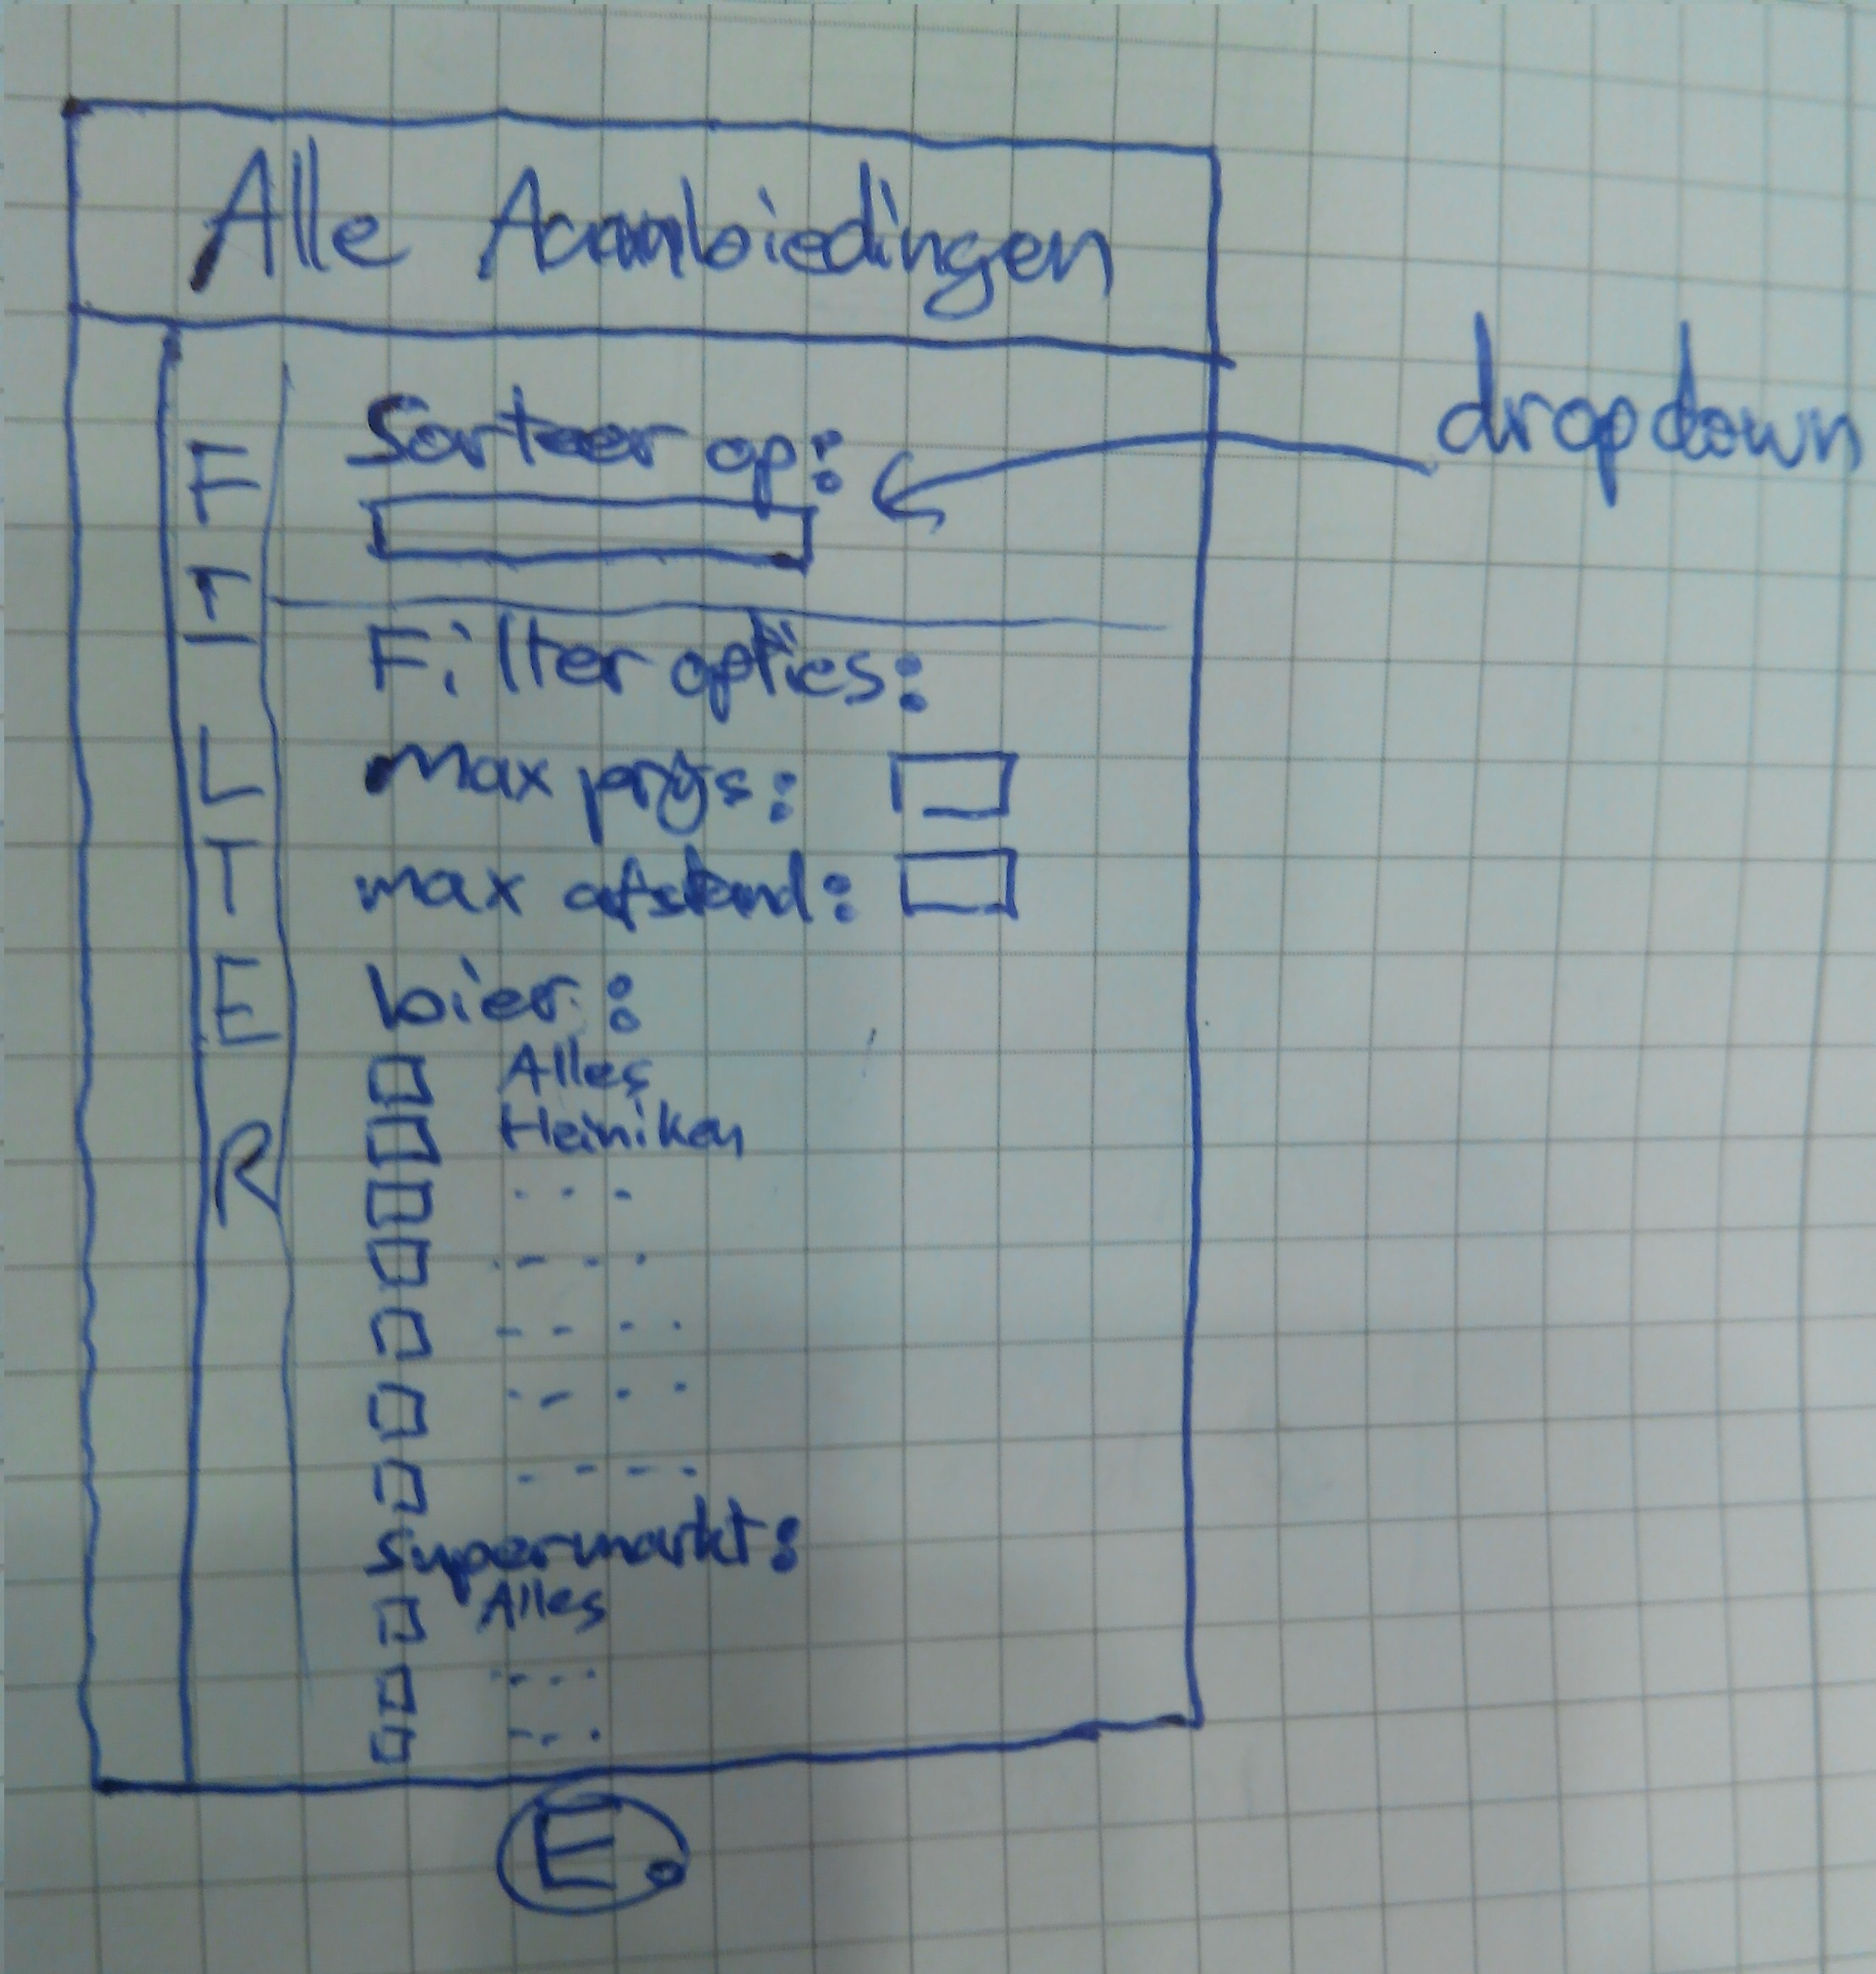 Alle Aanbiedingen
dropdown
FILTER
Sorteer op:
Filter opties:
max prijs:
max afstand:
bier:
Alles
Heiniken
Supermarkt:
Alles
E.